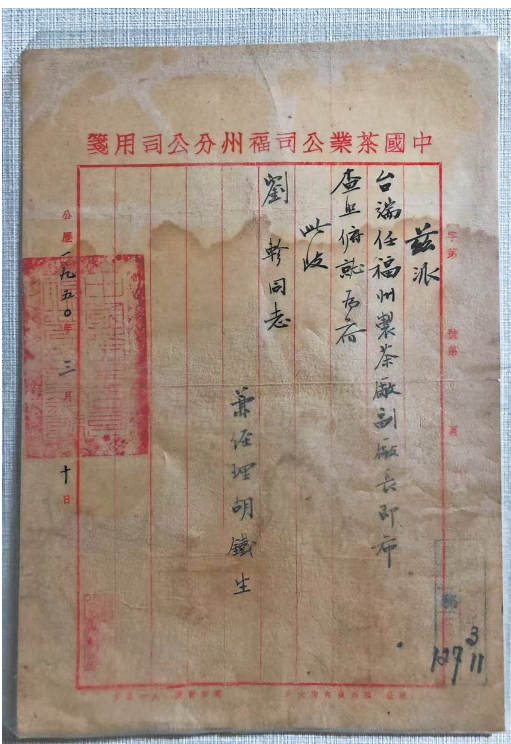 中國茶業公司福州分公司用箋
字第　號第　頁
茲派
台端任福州製茶廠副廠長即希
查照俯就為荷
此致
劉軫同志
兼經理胡鐵生
公歷一九五〇年三月十日
3
127 11